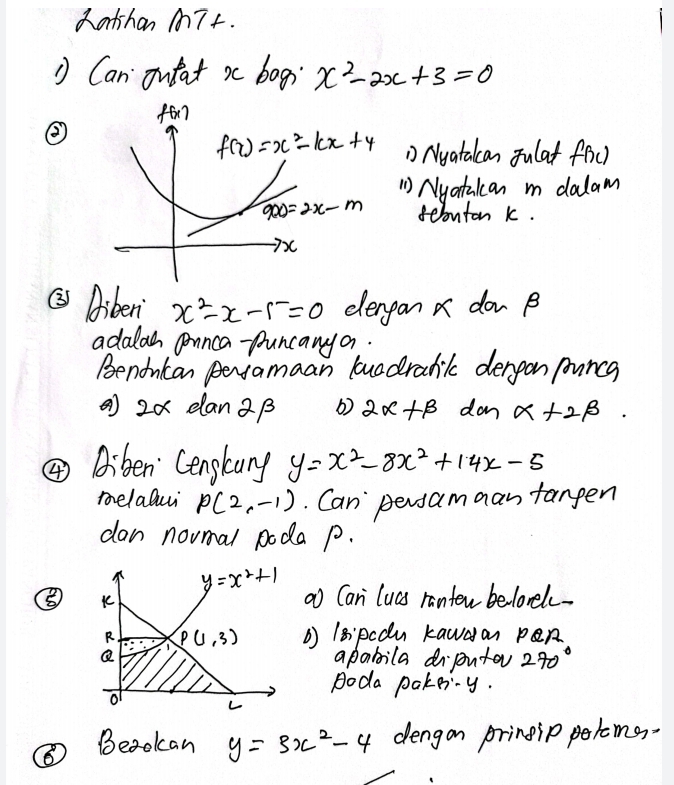 Latihan MT4.
1) Cari sifat x bagi x²-2x+3=0
f(x)
② f(x)=x²-kx+4
i) Nyatakan julat f(x)
g(x)=2x-m
ii) Nyatakan m dalam
sebutan k.
x
③ Diberi x²-x-5=0 dengan α dan β
adalah punca-puncanya.
Bentukan persamaan kuadratik dengan punca
a) 2α dan 2β b) 2α+β dan α+2β.
④ Diberi Lengkung y=x²-8x²+14x-5
melalui P(2,-1). Cari persamaan tangen
dan normal pada P.
⑤ y=x²+1
K
a) Cari luas rantau berlorek
R P(1,3)
Q
b) Isipadu kawasan PQR
apabila diputar 270°
pada paksi-y.
O L
⑥ Bezakan y=3x²-4 dengan prinsip